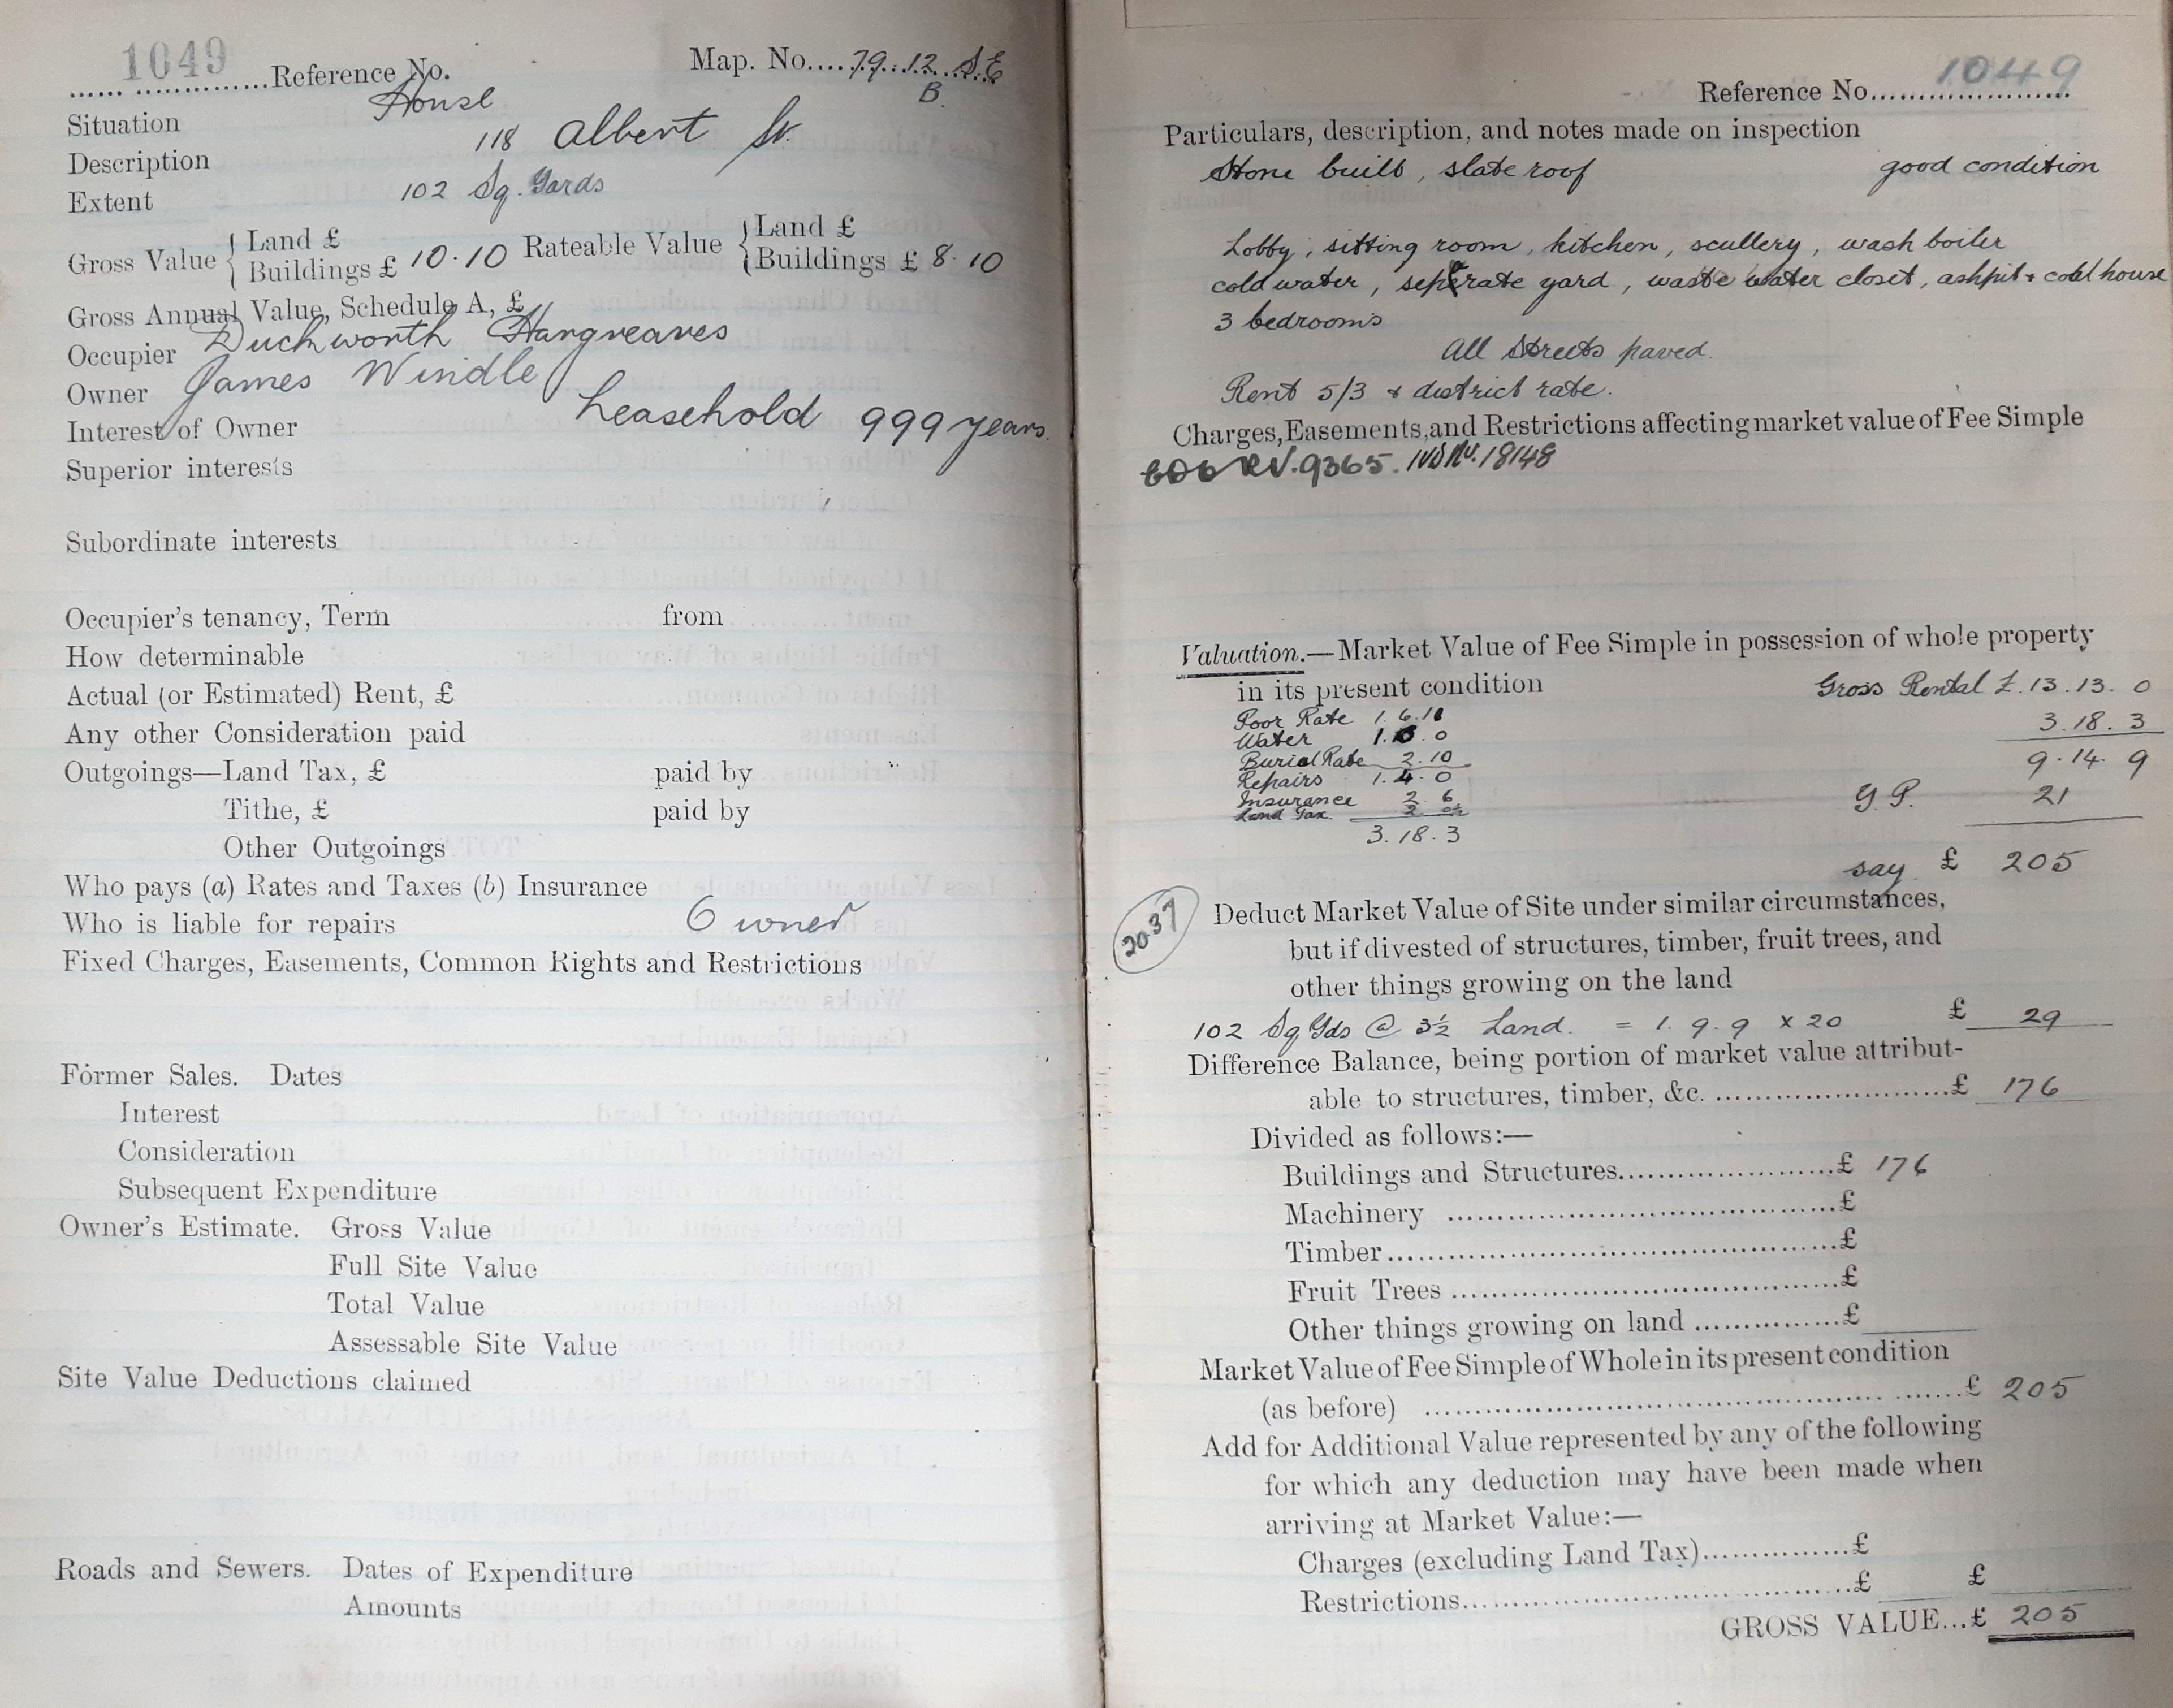 1049 Reference No. Map. No. 79.12 S.E
B.
House
Situation
118 Albert St.
Description
Extent 102 Sq. Yards
Gross Value { Land £
Buildings £ 10.10 Rateable Value { Land £
Buildings £ 8.10
Gross Annual Value, Schedule A, £
Occupier Duckworth Hargreaves
Owner James Windle
Interest of Owner Leasehold 999 years.
Superior interests
Subordinate interests
Occupier's tenancy, Term from
How determinable
Actual (or Estimated) Rent, £
Any other Consideration paid
Outgoings—Land Tax, £ paid by
Tithe, £ paid by
Other Outgoings
Who pays (a) Rates and Taxes (b) Insurance
Who is liable for repairs Owner
Fixed Charges, Easements, Common Rights and Restrictions
Former Sales. Dates
Interest
Consideration
Subsequent Expenditure
Owner's Estimate. Gross Value
Full Site Value
Total Value
Assessable Site Value
Site Value Deductions claimed
Roads and Sewers. Dates of Expenditure
Amounts
Reference No. 1049
Particulars, description, and notes made on inspection
Stone built, slate roof good condition
Lobby, sitting room, kitchen, scullery, wash boiler
cold water, seperate yard, waste water closet, ashpit + coal house
3 bedrooms
All Streets paved.
Rent 5/3 + district rate.
Charges, Easements, and Restrictions affecting market value of Fee Simple
RV.9365. 18148
Valuation.—Market Value of Fee Simple in possession of whole property
in its present condition Gross Rental £.13.13.0
Poor Rate 1.6.11 3.18.3
Water 0
Burial Rate 2.10 9.14.9
Repairs 1.4.0
Insurance 2 6 Y.P. 21
Land Tax
3.18.3
say £ 205
2037
Deduct Market Value of Site under similar circumstances,
but if divested of structures, timber, fruit trees, and
other things growing on the land
102 Sq Yds @ 3½ Land. = 1.9.9 x 20 £ 29
Difference Balance, being portion of market value attribut-
able to structures, timber, &c. £ 176
Divided as follows:—
Buildings and Structures £ 176
Machinery £
Timber £
Fruit Trees £
Other things growing on land £
Market Value of Fee Simple of Whole in its present condition
(as before) £ 205
Add for Additional Value represented by any of the following
for which any deduction may have been made when
arriving at Market Value:—
Charges (excluding Land Tax) £
Restrictions £ £
GROSS VALUE...£ 205